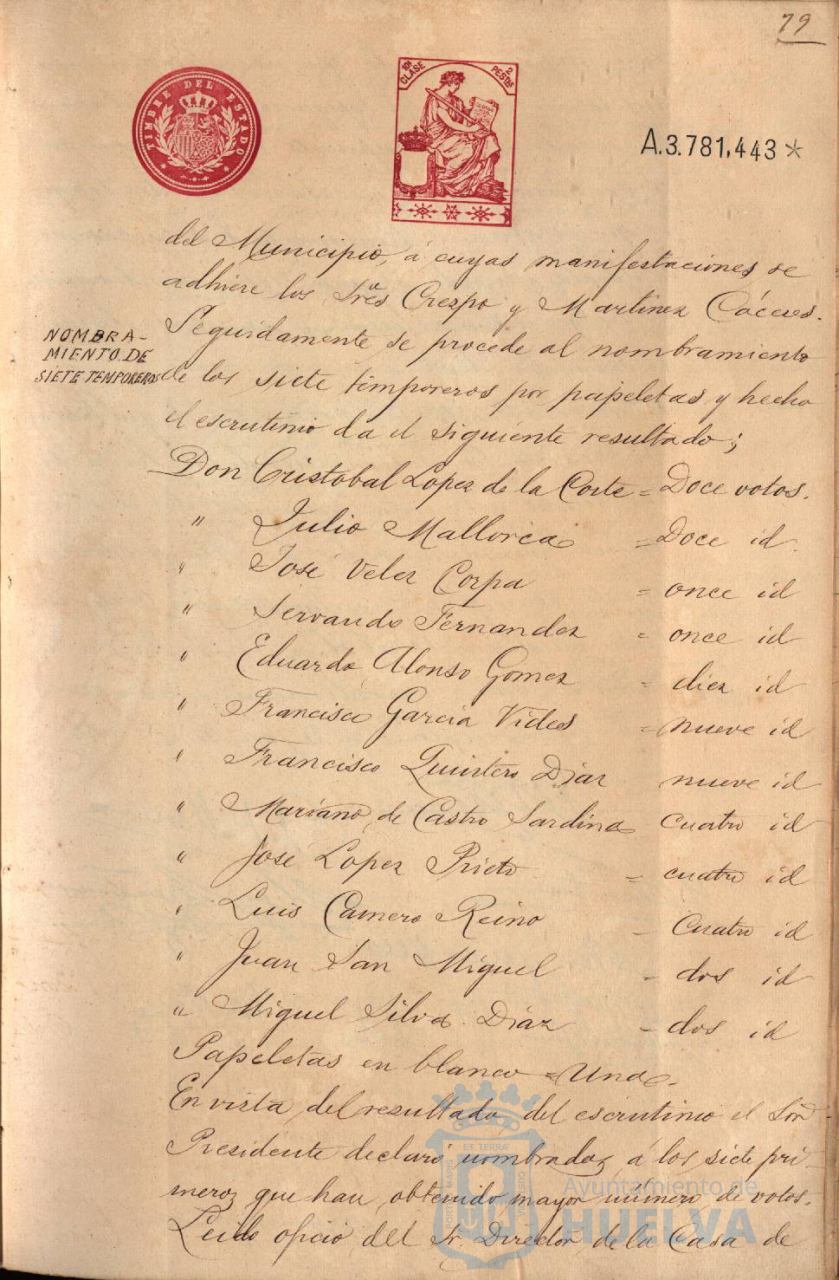 79
TIMBRE DEL ESTADO
10ª CLASE 2 PESTAS
A.3.781,443*
del Municipio, á cuyas manifestaciones se
adhiere los Sres Crespo y Martinez Cáceres.
NOMBRA-
MIENTO DE
SIETE TEMPOREROS
Seguidamente se procede al nombramiento
de los siete temporeros por papeletas y hecho
el escrutinio da el siguiente resultado;
Don Cristobal Lopez de la Corte = Doce votos.
" Julio Mallorca = Doce id.
" José Velez Corpa = once id
" Servando Fernandez = once id
" Eduardo Alonso Gomez = diez id
" Francisco Garcia Vides = nueve id
" Francisco Quintero Diaz nueve id
" Mariano de Castro Sardina cuatro id
" José Lopez Prieto = cuatro id
" Luis Camero Reino = Cuatro id
" Juan San Miguel = dos id
" Miguel Silva Díaz = dos id
Papeletas en blanco = Una.
En vista del resultado del escrutinio el Sor
Presidente declaró nombrados á los siete pri-
meros que han obtenido mayor número de votos.
Leido oficio del Sr. Director de la Casa de
Ayuntamiento de
HUELVA